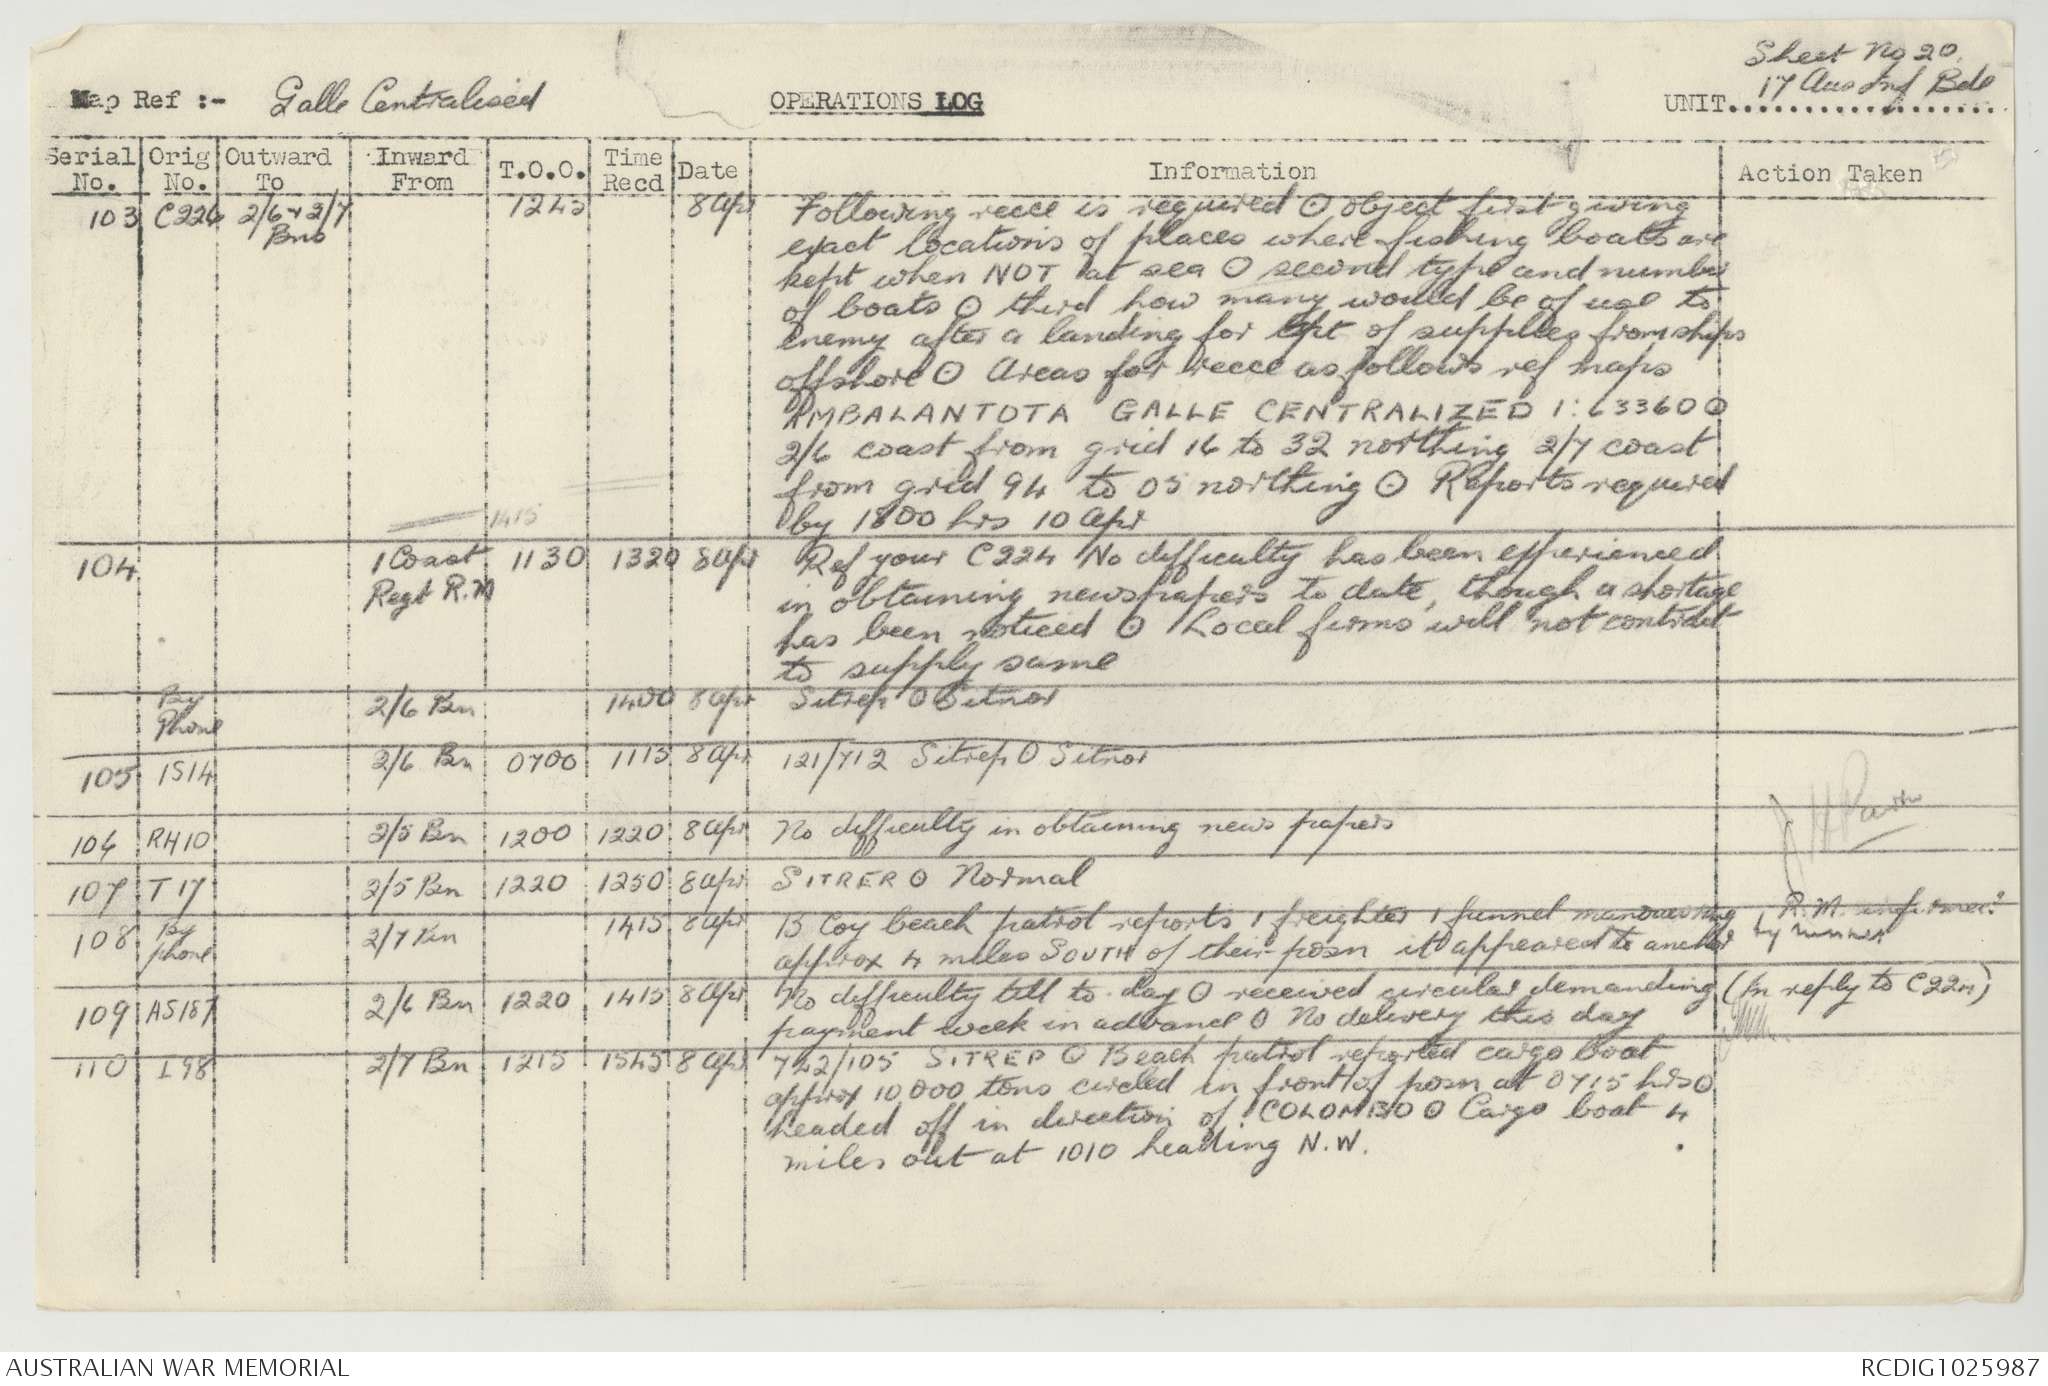 Sheet No 20.
Map Ref :- Galle Centralised OPERATIONS LOG UNIT 17 Aus Inf Bde
Serial No. Orig No. Outward To Inward From T.O.O. Time Recd Date Information Action Taken
103 C226 2/6 & 2/7 Bns 1245 8 Apr Following recce is required ⊙ object first giving
exact locations of places where fishing boats are
kept when NOT at sea ⊙ second type and number
of boats ⊙ third how many would be of use to
enemy after a landing for tpt of supplies from ships
offshore ⊙ Areas for recce as follows ref maps
AMBALANTOTA GALLE CENTRALIZED 1:63360 ⊙
2/6 coast from grid 16 to 32 northing 2/7 coast
from grid 94 to 05 northing ⊙ Reports required
by 1800 hrs 10 Apr
1415
104 1 Coast Regt R.M 1130 1320 8 Apr Ref your C224 No difficulty has been experienced
in obtaining newspapers to date, though a shortage
has been noticed ⊙ Local firms will not contract
to supply same
By Phone 2/6 Bn 1400 8 Apr Sitrep ⊙ Sitnor
105 IS14 2/6 Bn 0700 1115 8 Apr 121/712 Sitrep ⊙ Sitnor
106 RH10 2/5 Bn 1200 1220 8 Apr No difficulty in obtaining news papers
107 T17 2/5 Bn 1220 1250 8 Apr SITREP ⊙ Normal
108 By phone 2/7 Bn 1415 8 Apr B Coy beach patrol reports 1 freighter 1 funnel manouevring R.M. informed
approx 4 miles SOUTH of their posn it appeared to anchor by
109 AS187 2/6 Bn 1220 1415 8 Apr No difficulty till to-day ⊙ received circular demanding (In reply to C224)
payment week in advance ⊙ No delivery this day
110 I98 2/7 Bn 1215 1545 8 Apr 742/105 SITREP ⊙ Beach patrol reported cargo boat
approx 10,000 tons circled in front of posn at 0715 hrs ⊙
headed off in direction of COLOMBO ⊙ Cargo boat 4
miles out at 1010 heading N.W.
AUSTRALIAN WAR MEMORIAL RCDIG1025987